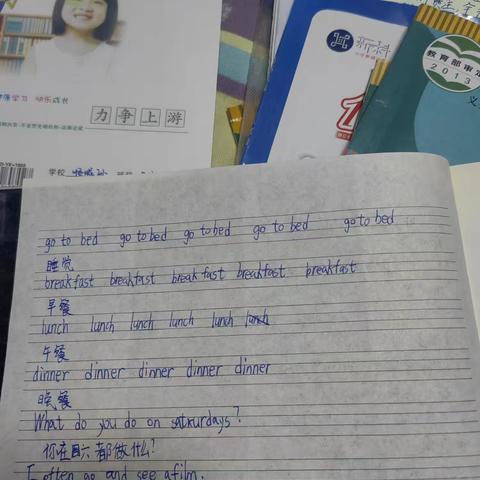 教育部审定
2013
义
新科
健康学习 快乐成长
力争上游
学校
go to bed go to bed go to bed go to bed go to bed
睡觉
breakfast breakfast breakfast breakfast breakfast
早餐
lunch lunch lunch lunch lunch lunch
午餐
dinner dinner dinner dinner dinner
晚餐
What do you do on saturdays?
你在周六都做什么?
I often go and see a film.